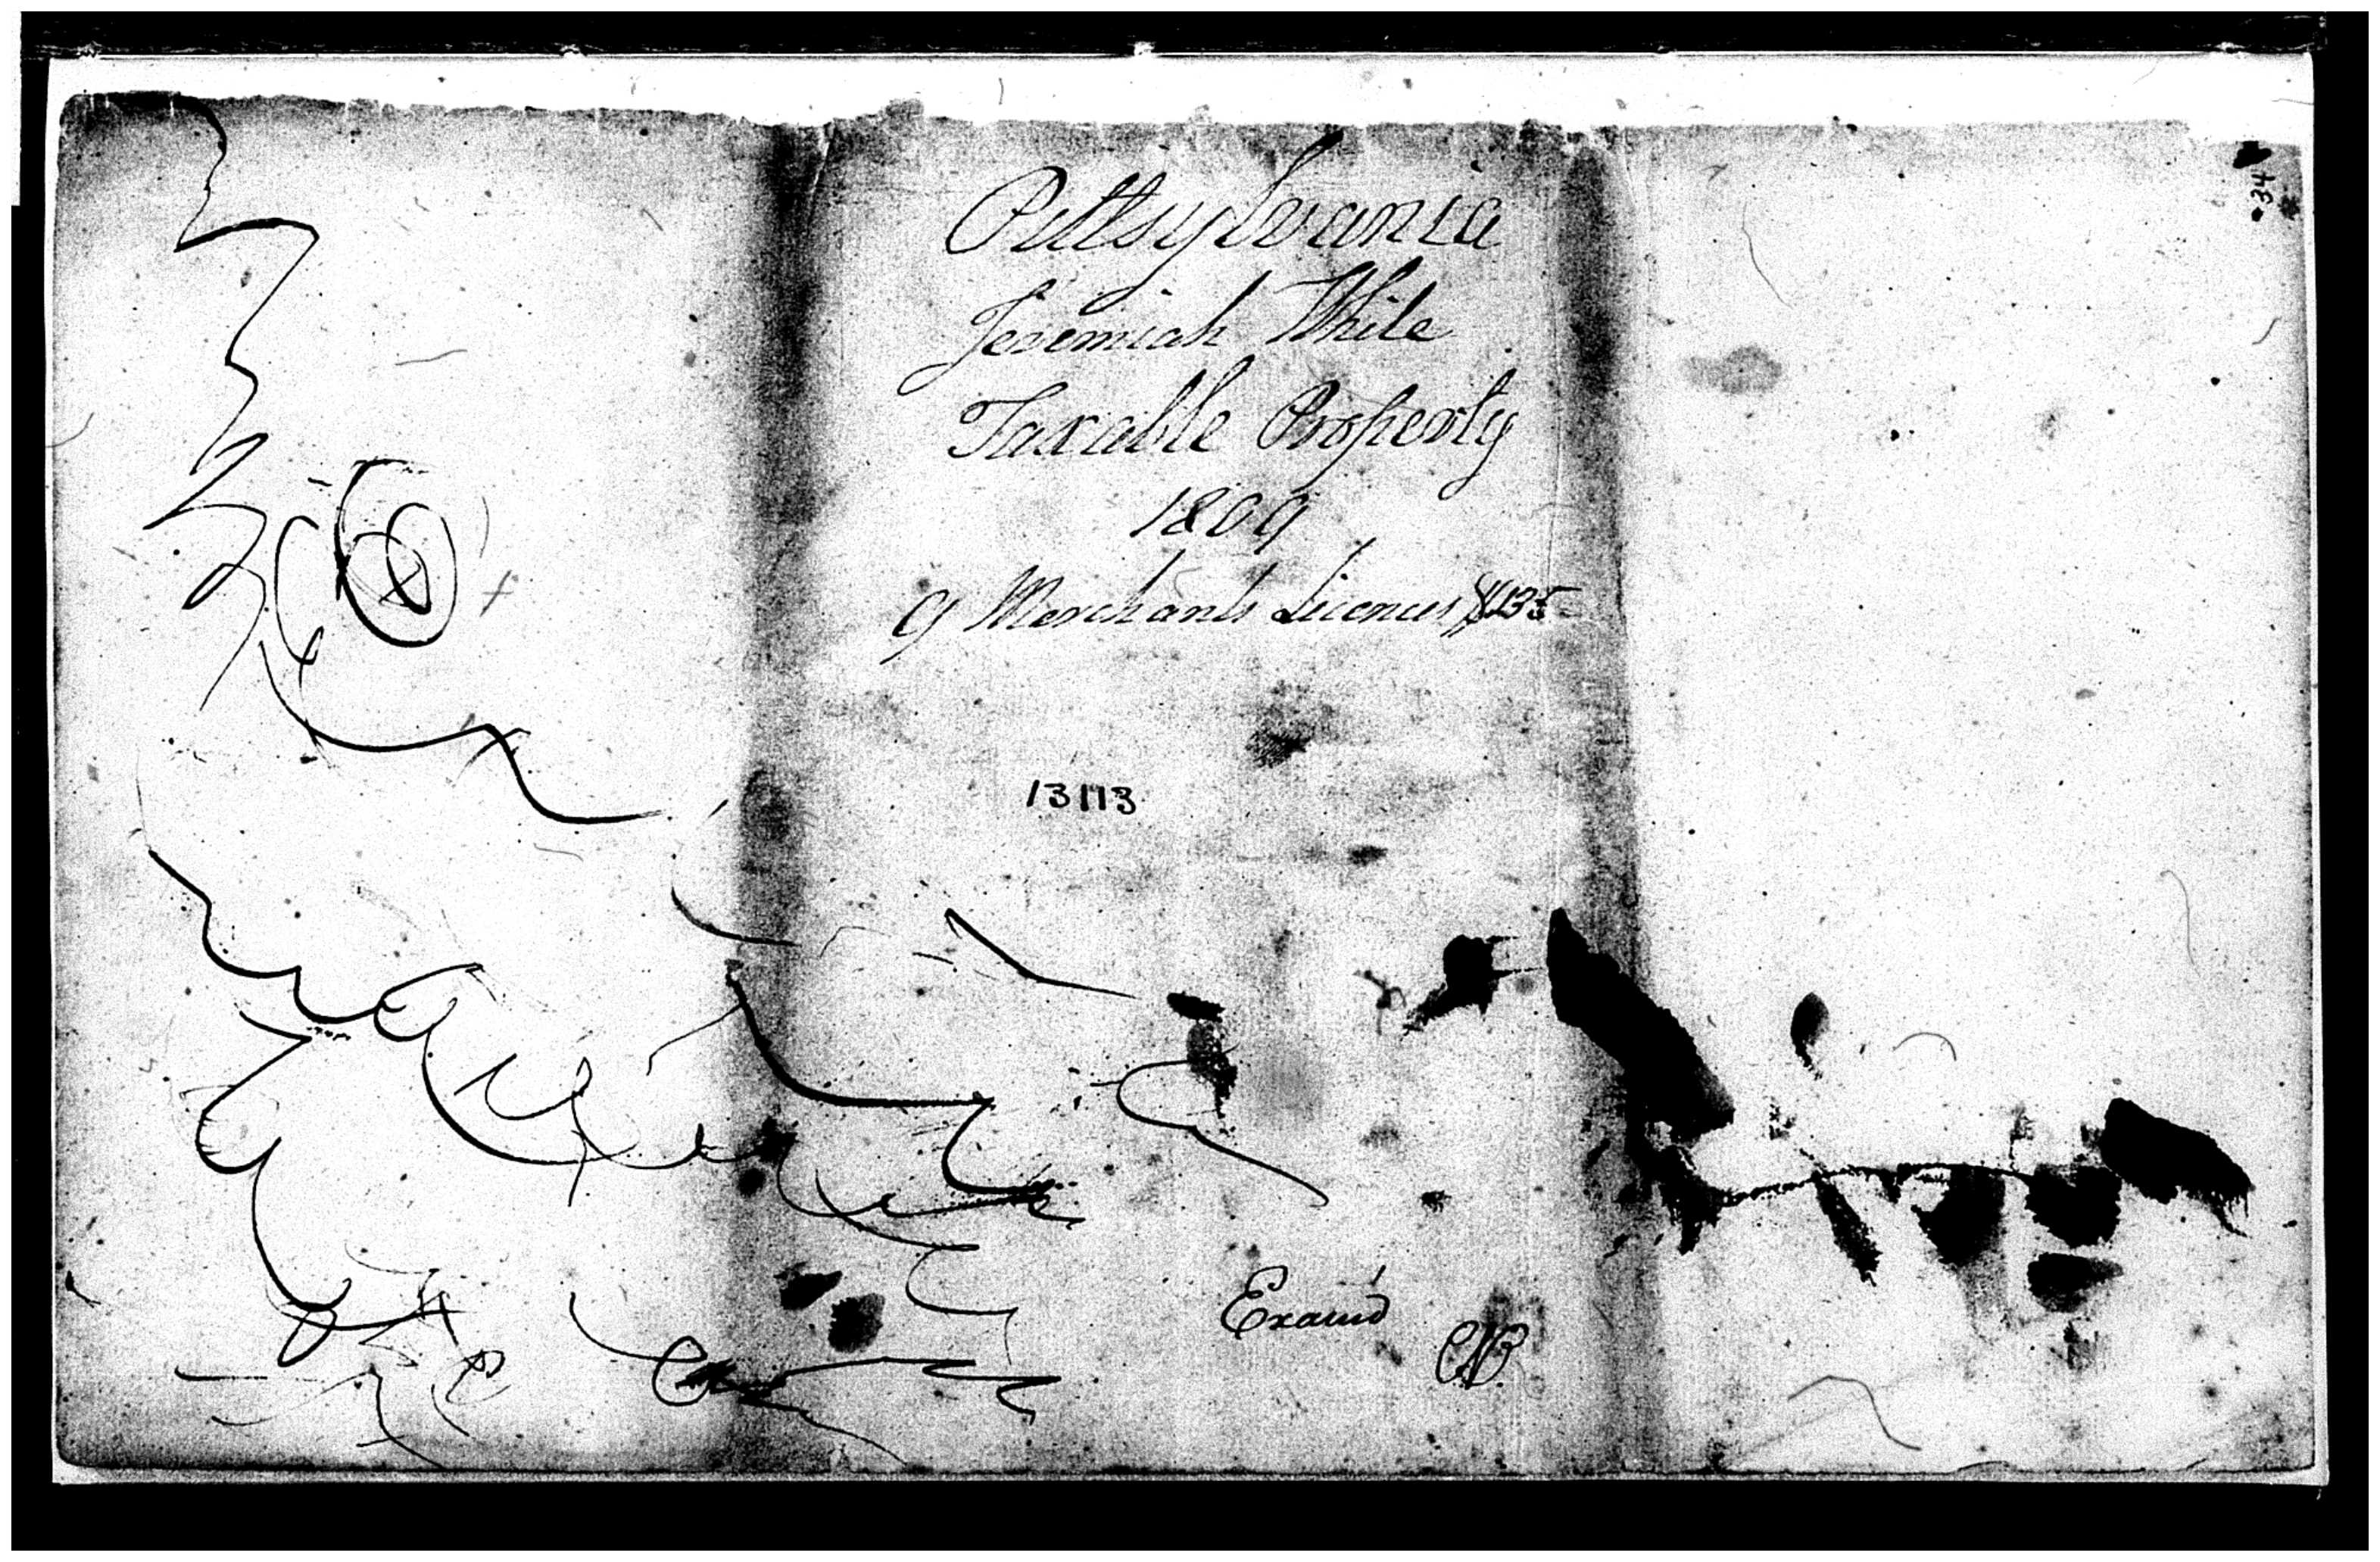 Pittsylvania
Jeremiah White
Taxable Property
1809
9 Merchants Licences $135=
13113
Examd
CNB
34